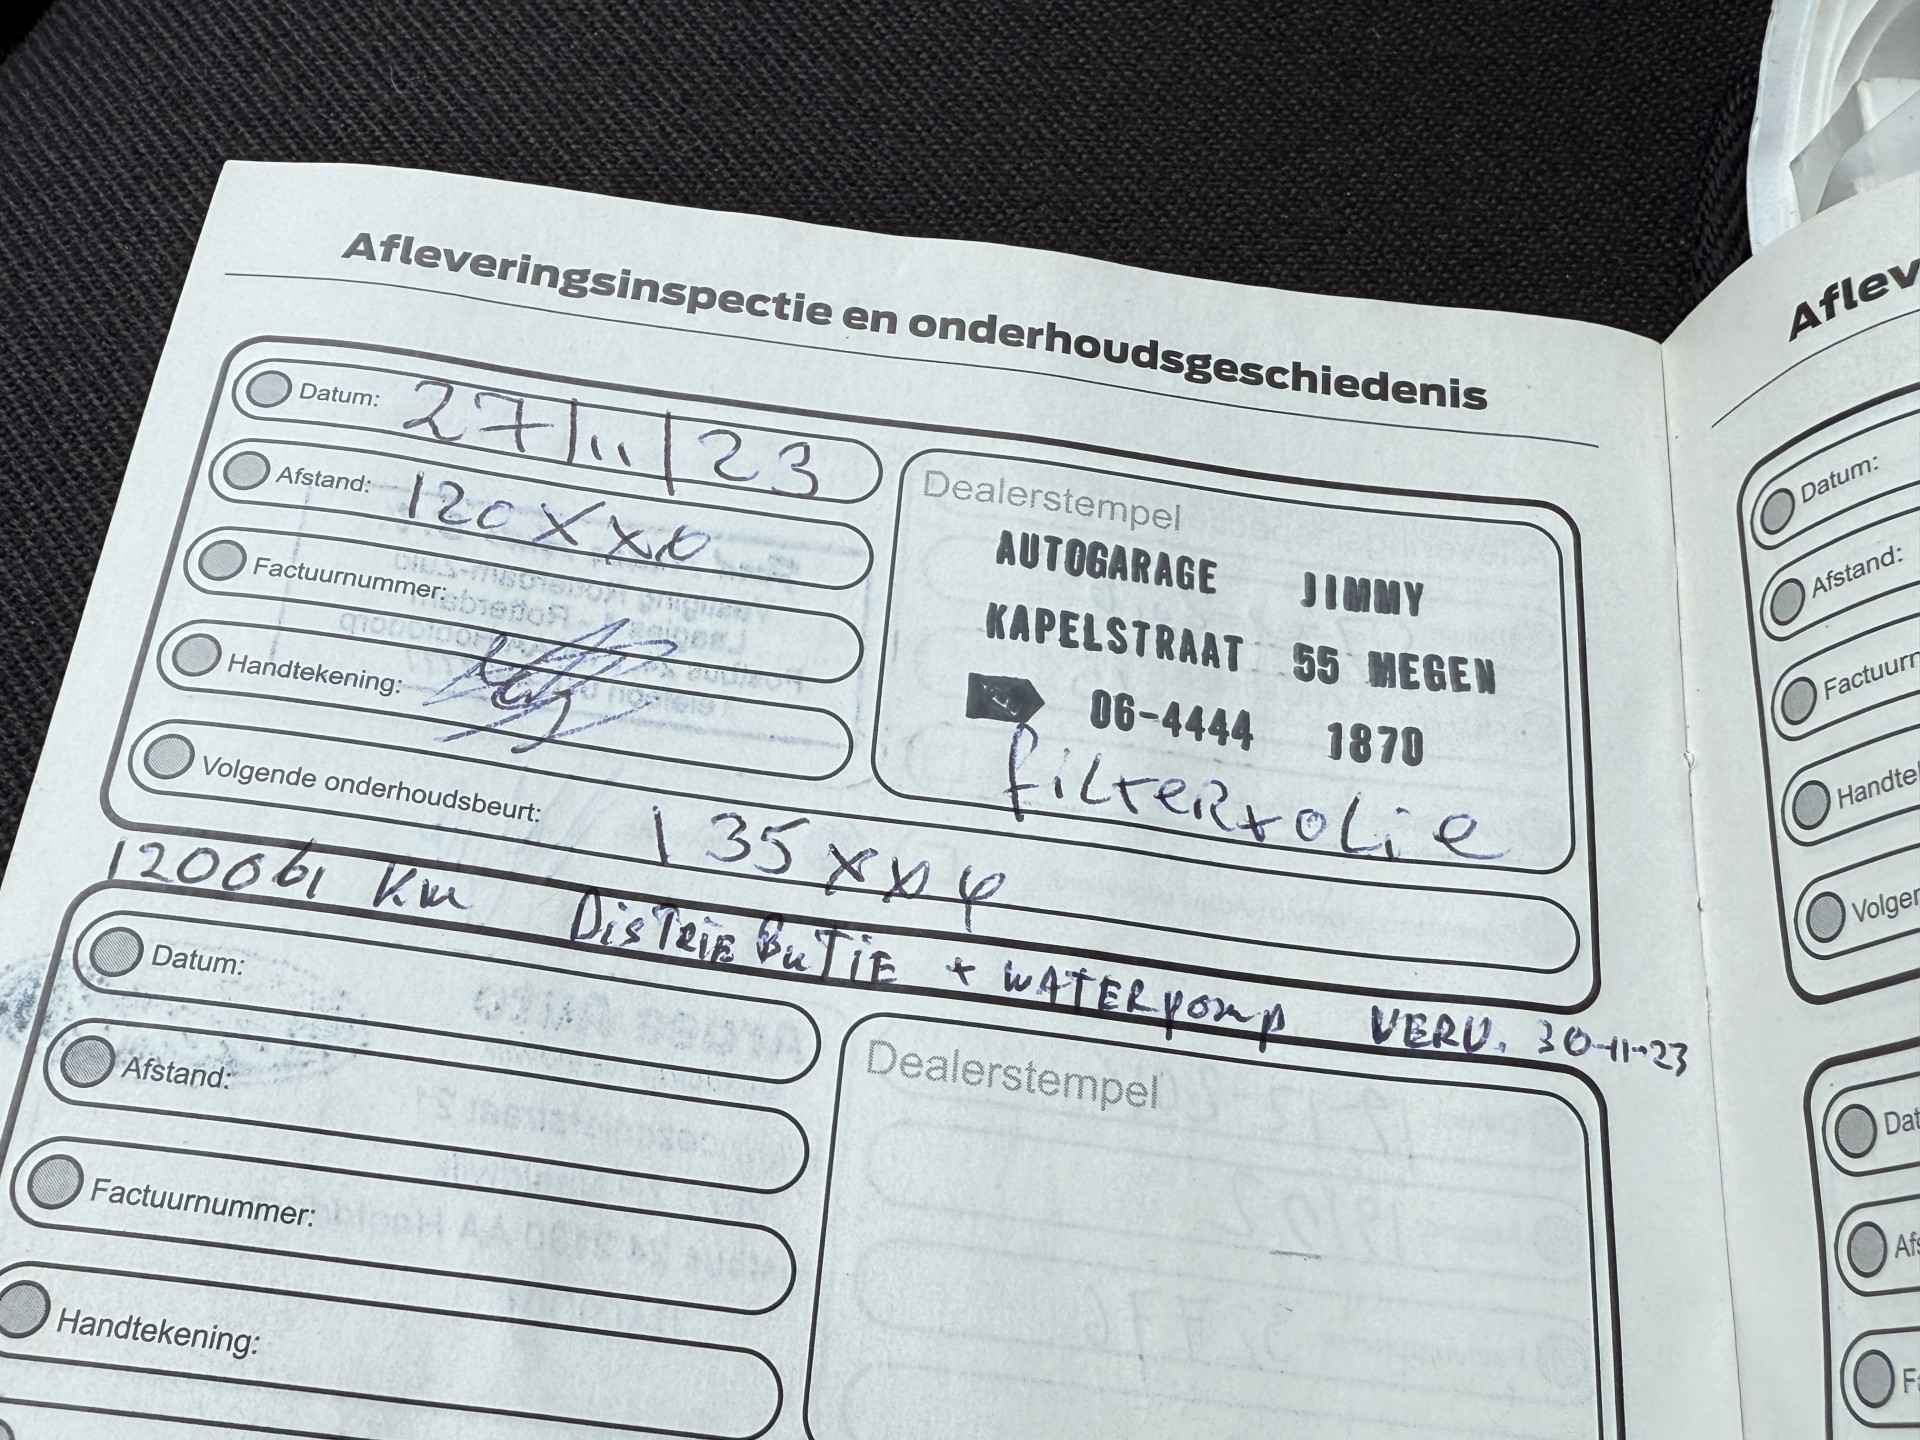 Afleveringsinspectie en onderhoudsgeschiedenis
Datum: 27/11/23
Afstand: 120xxo
Factuurnummer:
Handtekening:
Volgende onderhoudsbeurt: 135xxφ
Dealerstempel
AUTOGARAGE JIMMY
KAPELSTRAAT 55 MEGEN
06-4444 1870
filter+olie
120061 Km DisTRiE BuTiE + WATERpomp VERV. 30-11-23
Datum:
Afstand:
Factuurnummer:
Handtekening:
Dealerstempel
Aflev
Datum:
Afstand:
Factuurn
Handte
Volger
Dat
Afs